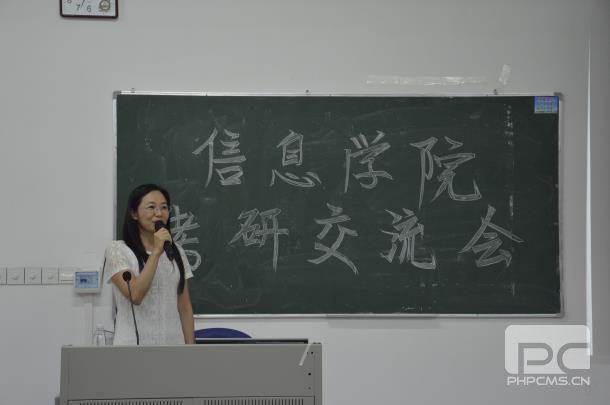 信息学院
考研交流会
PC
PHPCMS.CN